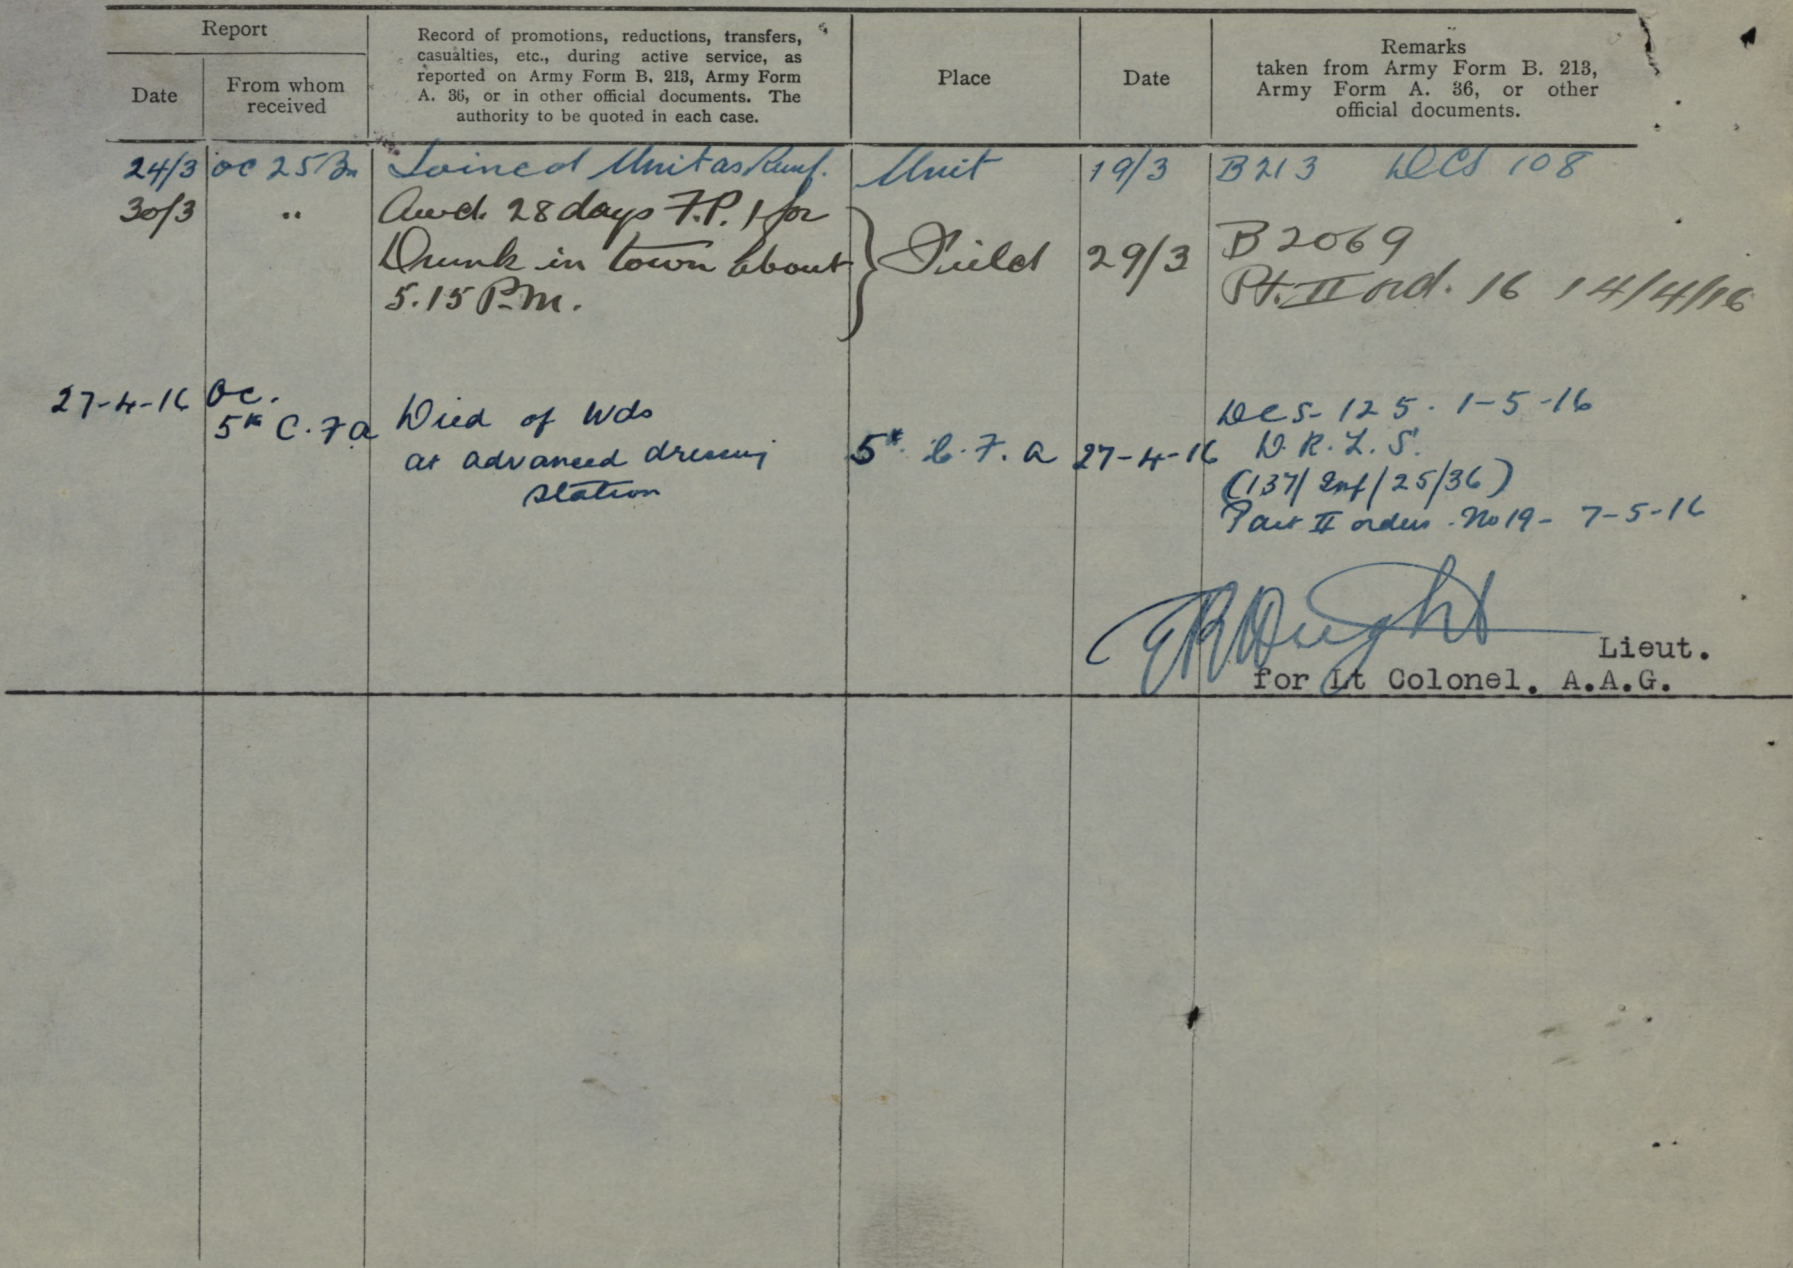 Report
Date
From whom
received
Record of promotions, reductions, transfers,
casualties, etc., during active service, as
reported on Army Form B. 213, Army Form
A. 36, or in other official documents. The
authority to be quoted in each case.
Place
Date
Remarks
taken from Army Form B. 213,
Army Form A. 36, or other
official documents.
24/3 OC 25 Bn Joined Unit as Reinf. Unit 19/3 B213 DCS 108
30/3 " Awd. 28 days F.P. 1 for
Drunk in town about
5.15 P.M.
Field 29/3 B 2069
Pt. II ord. 16 14/4/16
27-4-16 OC.
5th C.F.A
Died of Wds
at advanced dressing
station
5th C.F.A 27-4-16
DCS 125. 1-5-16
D.R.L.S.
(137/Inf/25/36)
Part II orders No 19 - 7-5-16
Lieut.
for Lt Colonel. A.A.G.